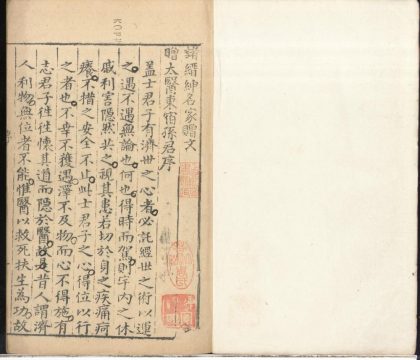 諸縉紳名家贈文
贈太醫東宿孫君序
盖士君子有濟世之心者必託經世之術以運
之遇不遇無論也何也得時而駕則宇內之休
戚利害隱然共之視其患若切於身之疾痛疴
癢不措之安全不止此士君子之心得位以行
之者也不幸不獲遇澤不及物而心不得施有
志君子徃徃懷其道而隱於醫故是昔人謂濟
人利物無位者不能惟醫以救死扶生為功故